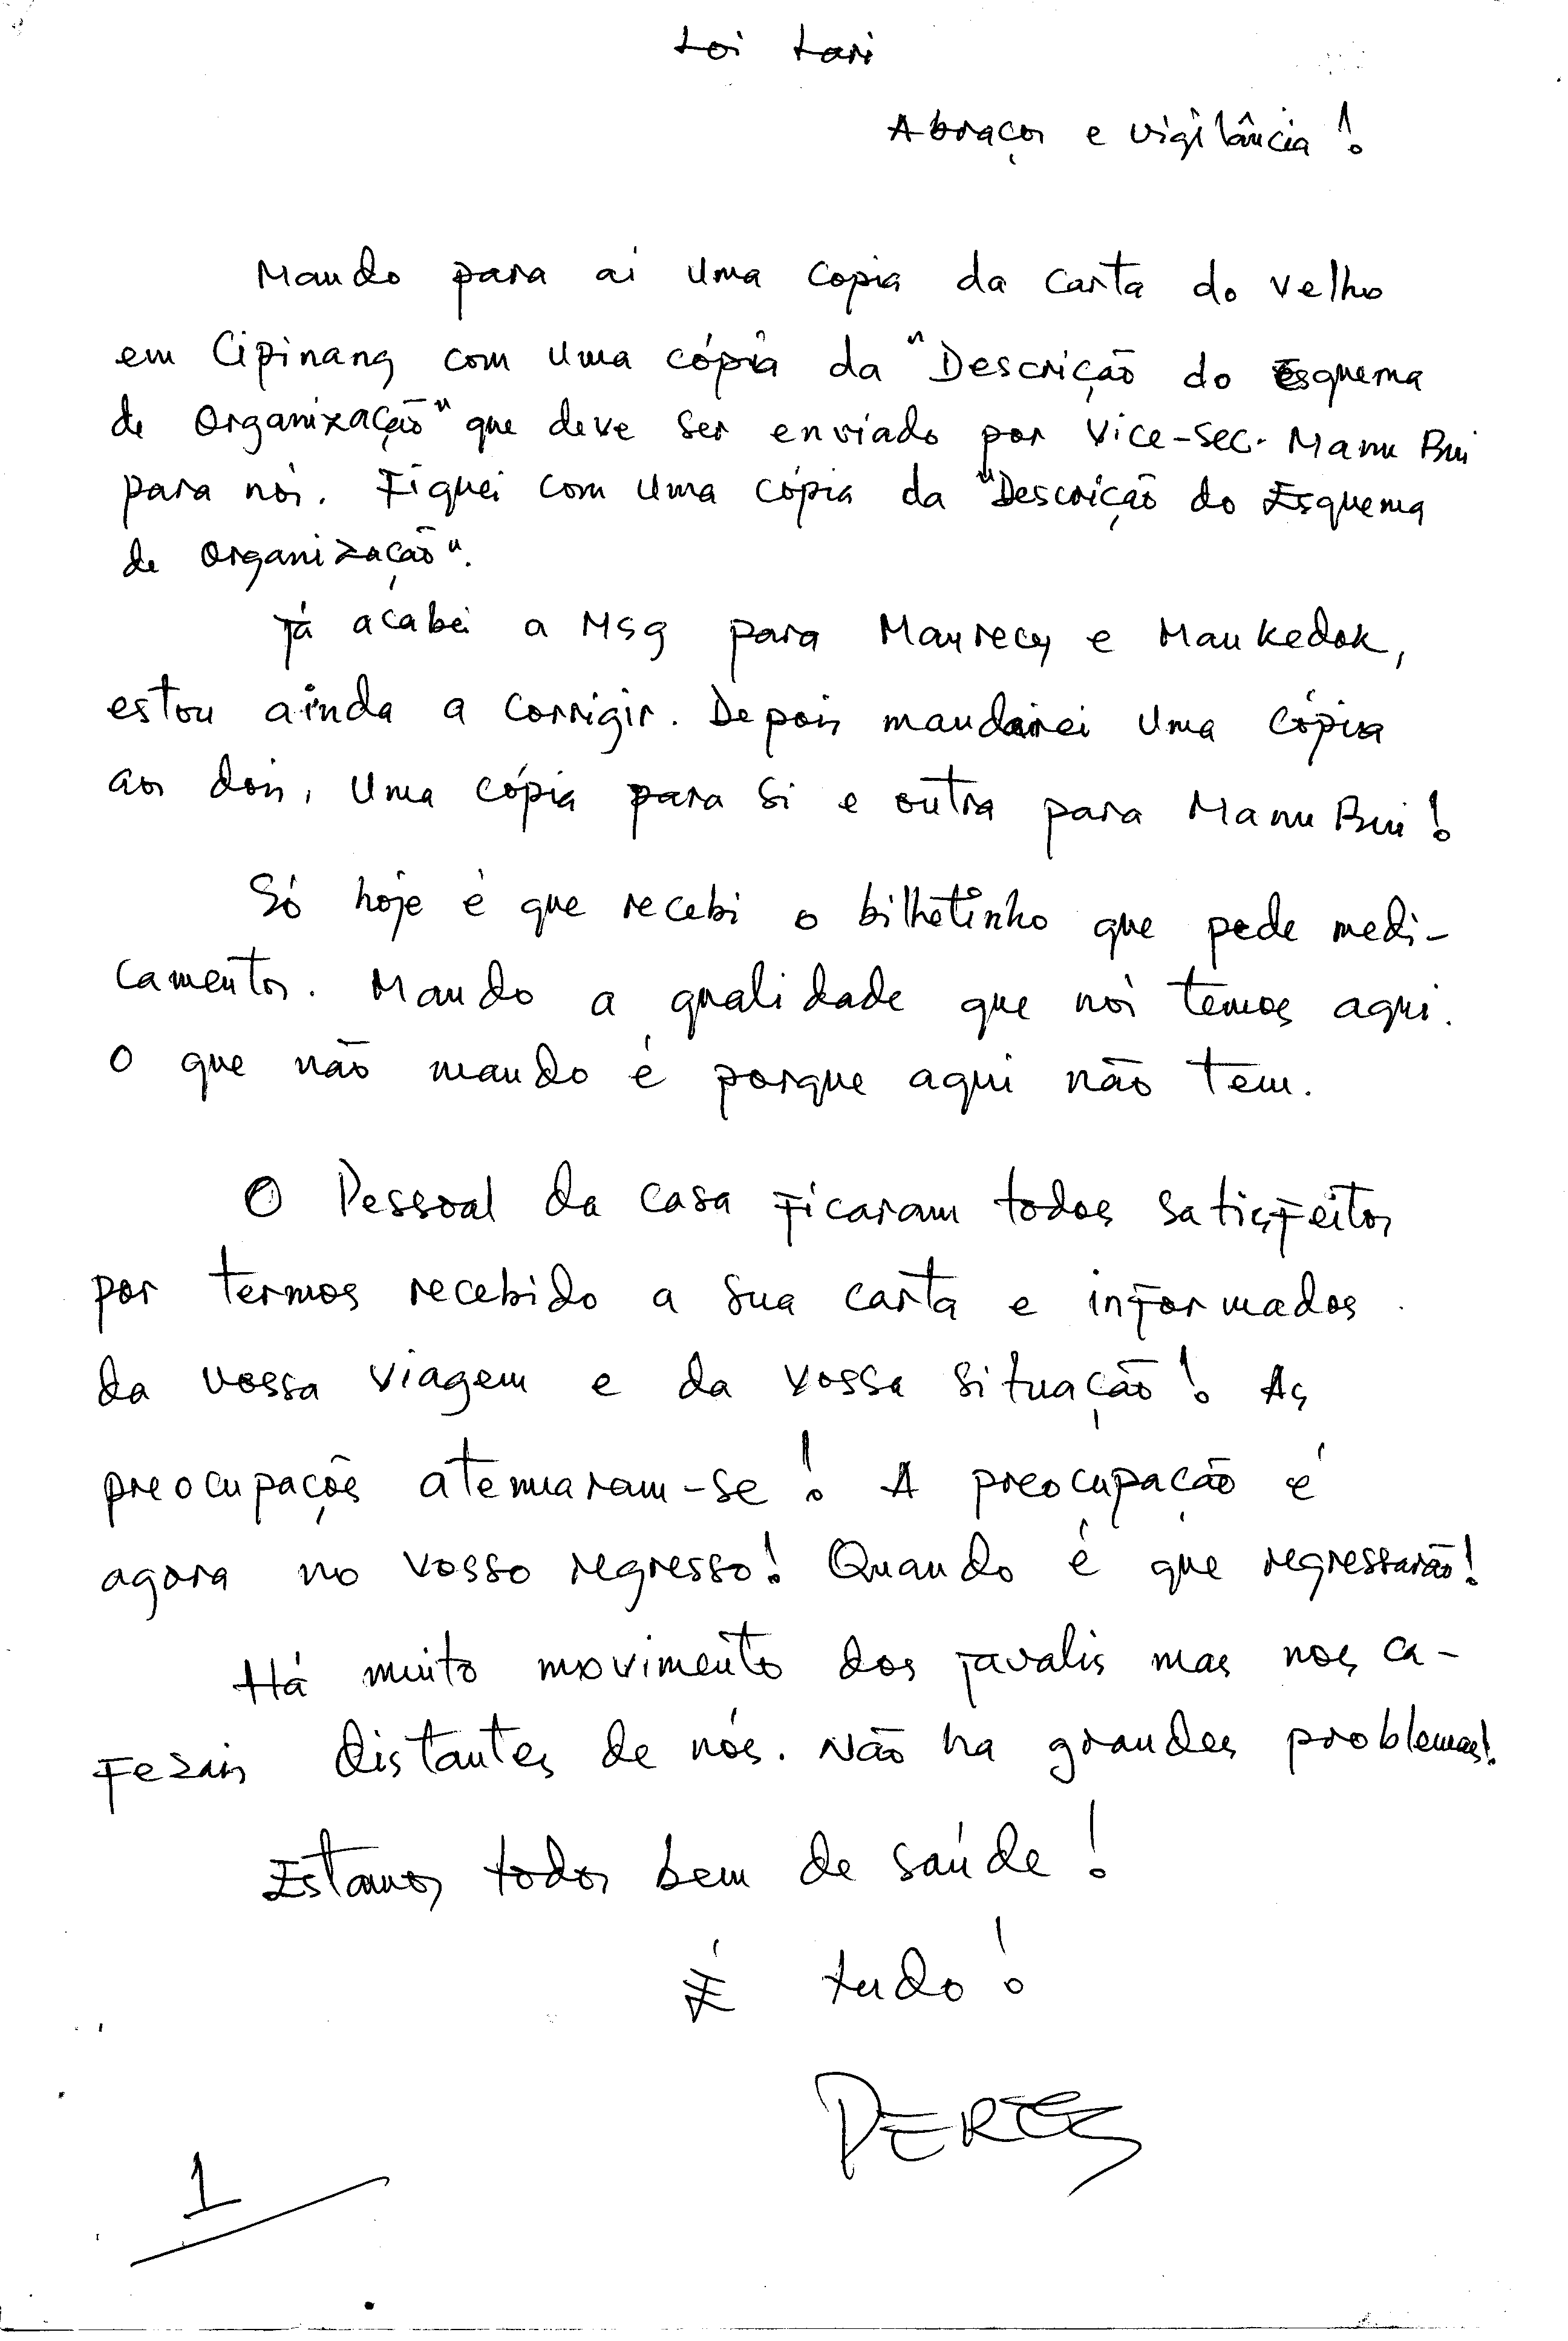 Loi Lari
Abraços e vigilância!
Mando para aí uma copia da carta do velho
em Cipinang com uma cópia da "Descrição do Esquema
de Organização" que deve ser enviado por Vice-Sec. Manu Bui
para nós. Fiquei com uma cópia da "Descrição do Esquema
de Organização".
Já acabei a Msg para Maurecy e Maukedok,
estou ainda a corrigir. Depois mandarei uma cópia
aos dois, uma cópia para si e outra para Manu Bui!
Só hoje é que recebi o bilhetinho que pede medi-
camentos. Mando a qualidade que nós temos aqui.
O que não mando é porque aqui não tem.
O Pessoal da casa ficaram todos satisfeitos
por termos recebido a sua carta e informados
da vossa viagem e da vossa situação! As
preocupações atenuaram-se! A preocupação é
agora no vosso regresso! Quando é que regressarão!
Há muito movimento dos javalis mas nos ca-
fezais distantes de nós. Não ha grandes problemas!
Estamos todos bem de saúde!
É tudo!
PERES
1